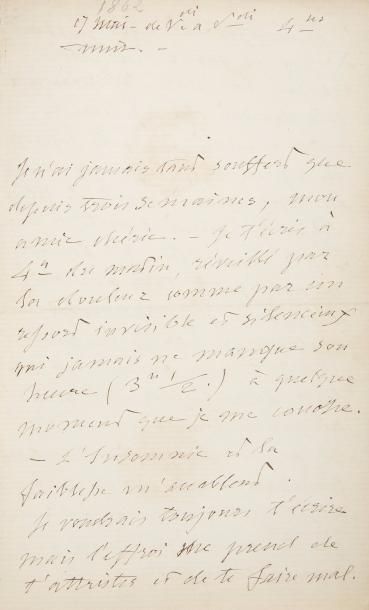 1862
17 mai - de V.di à S.di 4 hs
matin. -
Je n'ai jamais tant souffert que
depuis trois semaines, mon
amie chérie. - Je t'écris à
4 h du matin, réveillé par
la douleur comme par un
ressort invisible et silencieux
qui jamais ne manque son
heure (3 h 1/2.) à quelque
moment que je me couche.
- L'Insomnie et la
faiblesse m'accablent.
Je voudrais toujours t'écrire
mais l'effroi me prend de
t'attrister et de te faire mal.